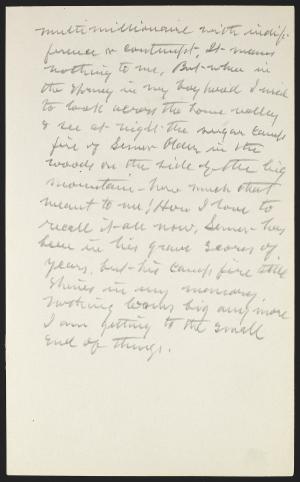 multimillionaire with indif-
ference or contempt. It means
nothing to me. But when in
the Spring in my boyhood I used
to look across the home valley
& see at night the sugar camp
fire of Seneor Older in the
woods on the side of the big
mountain - how much that
meant to me! How I love to
recall it all now. Seneor has
been in his grave scores of
years, but his camp fire still
shines in my memory.
Nothing looms big any more
I am getting to the small
end of things.